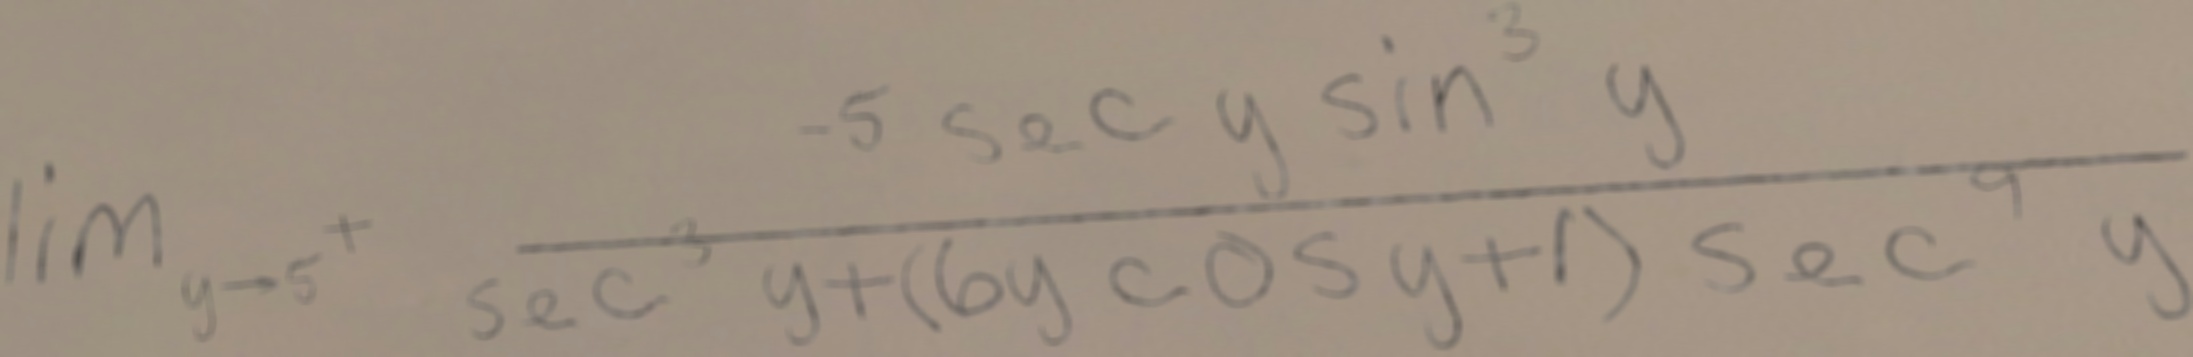 lim_{y→5^+} \frac{-5 sec y sin^3 y}{sec^3 y+(6y cos y+1) sec^9 y}